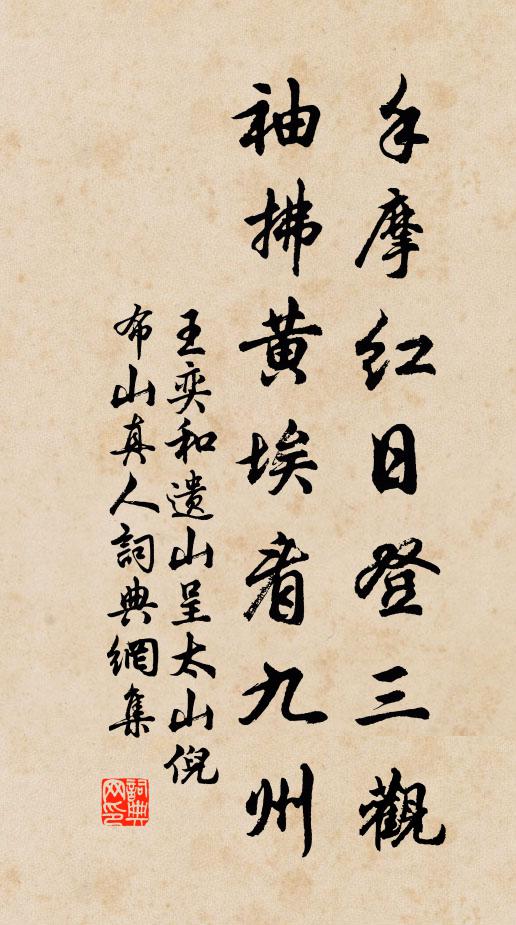 手摩紅日登三觀
袖拂黃埃看九州
王奕和遺山呈太山倪
布山真人詞典網集
詞典网印